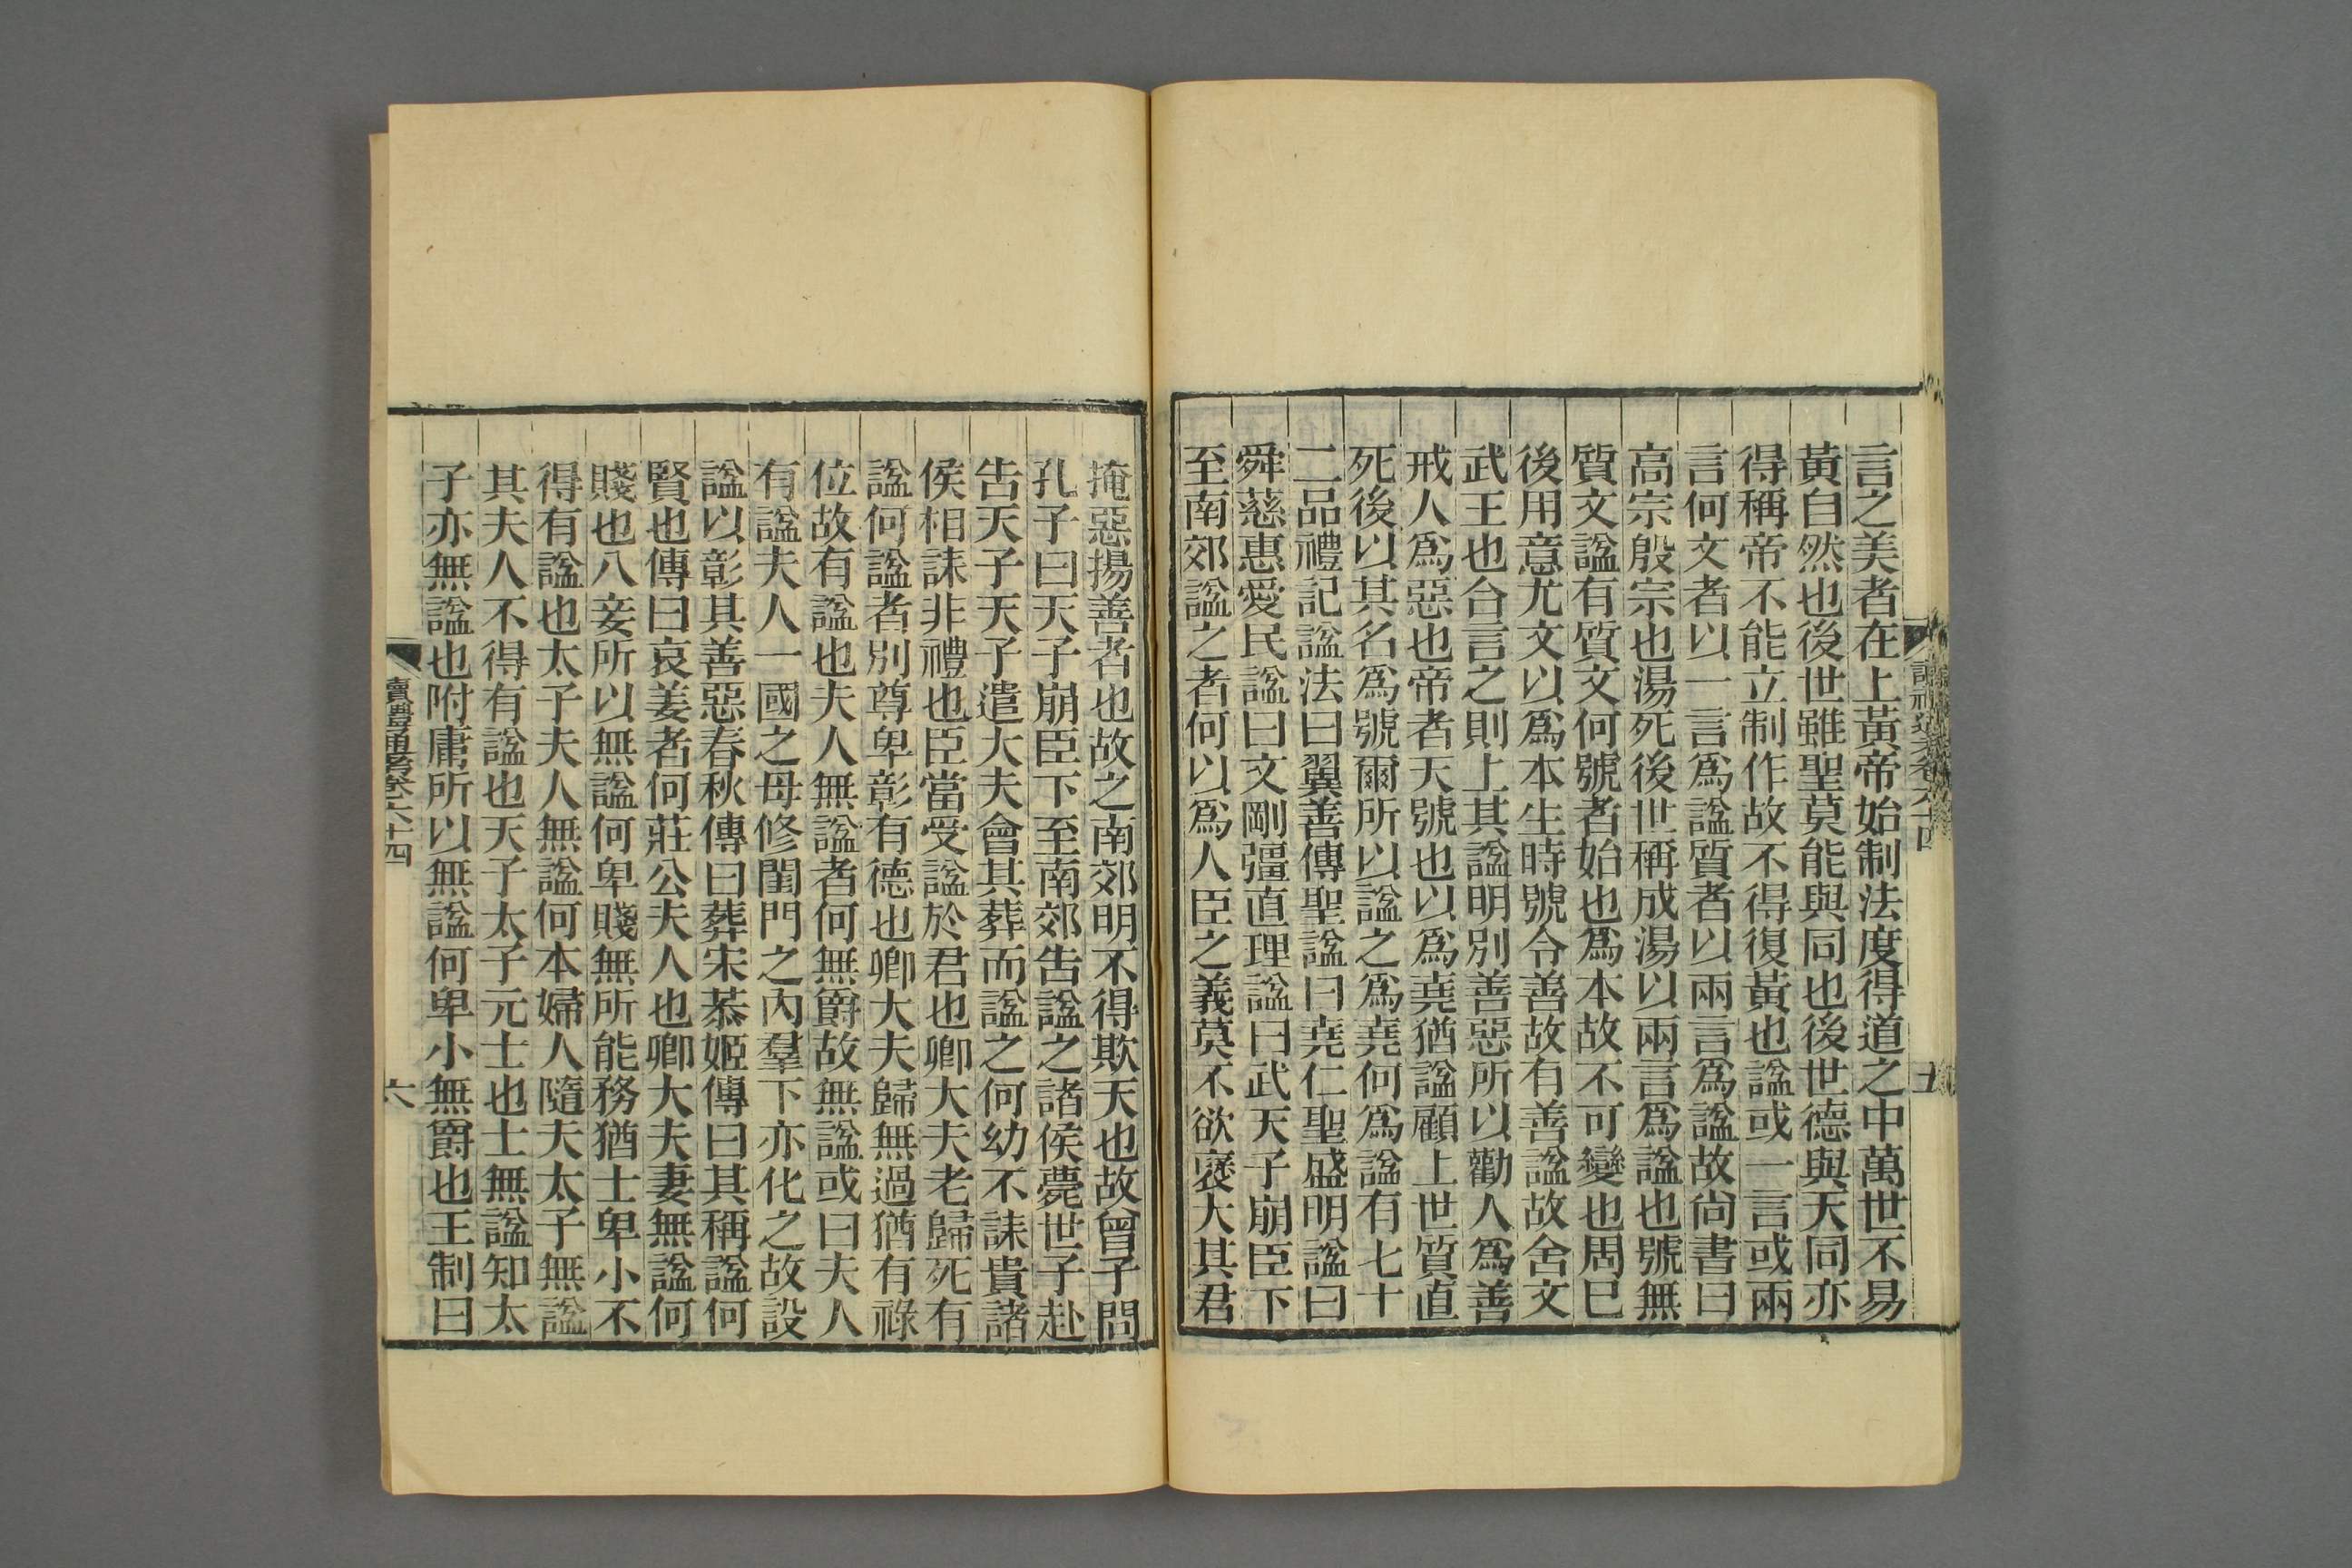 言之美者在上黃帝始制法度得道之中萬世不易
黃自然也後世雖聖莫能與同也後世德與天同亦
得稱帝不能立制作故不得復黃也諡或一言或兩
言何文者以一言爲諡質者以兩言爲諡故尙書曰
高宗殷宗也湯死後世稱成湯以兩言爲諡也號無
質文諡有質文何號者始也爲本故不可變也周已
後用意尤文以爲本生時號令善故有善諡故舍文
武王也合言之則上其諡明別善惡所以勸人爲善
戒人爲惡也帝者天號也以爲堯猶諡顧上世質直
死後以其名爲號爾所以諡之爲堯何爲諡有七十
二品禮記諡法曰翼善傳聖諡曰堯仁聖盛明諡曰
舜慈惠愛民諡曰文剛彊直理諡曰武天子崩臣下
至南郊諡之者何以爲人臣之義莫不欲襃大其君
掩惡揚善者也故之南郊明不得欺天也故曾子問
孔子曰天子崩臣下至南郊告諡之諸侯薨世子赴
告天子天子遣大夫會其葬而諡之何幼不誄貴諸
侯相誄非禮也臣當受諡於君也卿大夫老歸死有
諡何諡者別尊卑彰有德也卿大夫歸無過猶有祿
位故有諡也夫人無諡者何無爵故無諡或曰夫人
有諡夫人一國之母修閨門之內羣下亦化之故設
諡以彰其善惡春秋傳曰葬宋恭姬傳曰其稱諡何
賢也傳曰哀姜者何莊公夫人也卿大夫妻無諡何
賤也八妾所以無諡何卑賤無所能務猶士卑小不
得有諡也太子夫人無諡何本婦人隨夫太子無諡
其夫人不得有諡也天子太子元士也士無諡知太
子亦無諡也附庸所以無諡何卑小無爵也王制曰
讀禮通考卷六十四
六